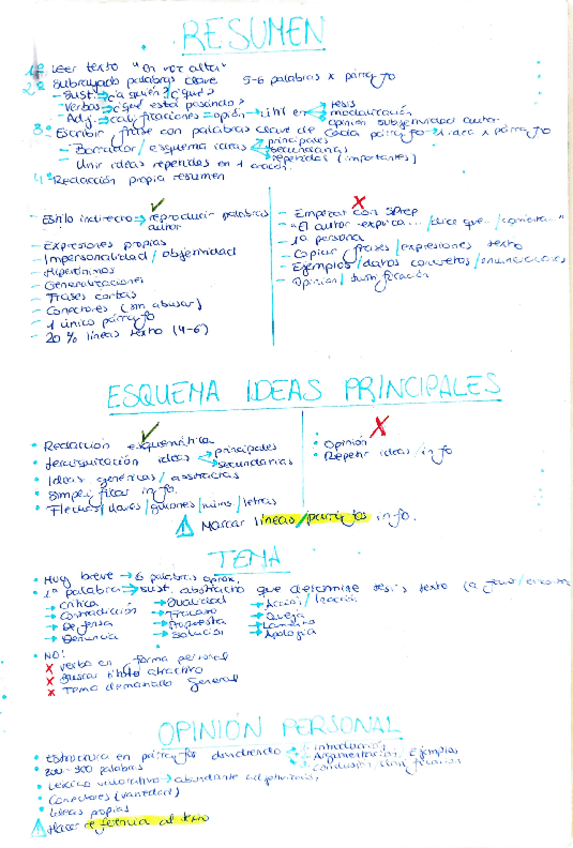 RESUMEN
1º Leer texto "en voz alta"
2º Subrayado palabras clave 5-6 palabras x párrafo
- Sust. → ¿a quién? ¿qué?
- Verbos → ¿qué está pasando?
- Adj. → calificaciones = opinión → útil en → tesis
→ modalización
→ opinión subjetividad autor
3º Escribir frase con palabras clave de cada párrafo → 1 idea x párrafo
- Borrador/esquema ideas → principales
→ secundarias
→ repetidas (importantes)
- Unir ideas repetidas en 1 oración.
4º Redacción propia resumen
- Estilo indirecto → reproducir palabras autor
- Expresiones propias
- Impersonalidad/objetividad
- Hiperónimos
- Generalizaciones
- Frases cortas
- Conectores (sin abusar)
- 1 único párrafo
- 20% líneas texto (4-6)
- Empezar con
- "El autor explica.../dice que.../comenta..."
- 1ª persona
- Copiar frases/expresiones texto
- Ejemplos/datos concretos/enumeraciones
- Opinión/
ESQUEMA IDEAS PRINCIPALES
• Redacción esquemática
• Jerarquización ideas → principales
→ secundarias
• Ideas genéricas/abstractas
• Simplificar info.
• Flechas/claves/guiones/núms/letras
• Opinión
• Repetir ideas/info
Marcar líneas/párrafos info.
TEMA
• Muy breve → 6 palabras aprox.
• 1ª palabra → sust. abstracto que determine tesis texto
→ Crítica → Dualidad
→ Contradicción → Fracaso → Queja
→ Defensa → Propuesta → Lamento
→ Denuncia → Solución → Apología
• NO!
x verbo en forma personal
x Buscar título atractivo
x Tema demasiado general
OPINIÓN PERSONAL
• Estructura en párrafos dividiendo → introducción
→ Argumentación, Ejemplos
→ conclusión/
• 200-300 palabras
• Léxico valorativo → abundante adjetivación
• Conectores (variedad)
• Ideas propias
Hacer referencia al texto